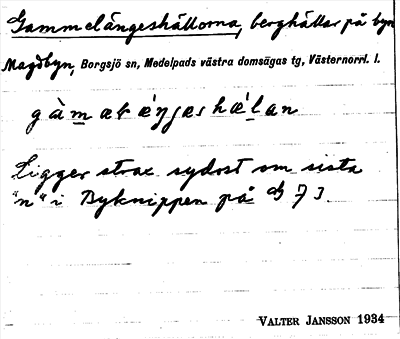 Gammelängeshällorna, berghällar på byn
Magdbyn, Borgsjö sn, Medelpads västra domsagas tg, Västernorrl. l.
Ligger strax sydost om sista
"n" i Byknippen på
VALTER JANSSON 1934